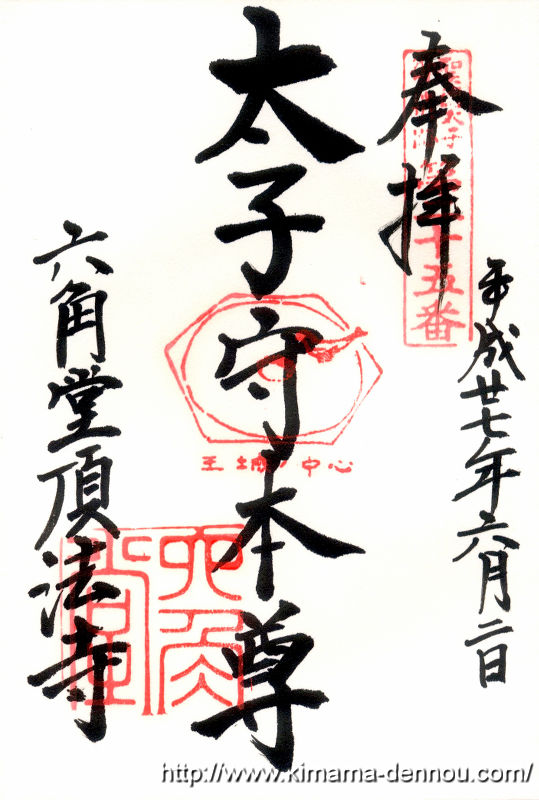 奉拝
平成廿七年六月二日
太子守本尊
六角堂頂法寺
五番
中心
六角堂
http://www.kimama-dennou.com/